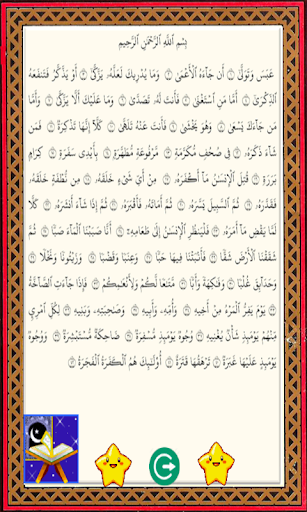 بِسْمِ ٱللَّهِ ٱلرَّحْمَٰنِ ٱلرَّحِيمِ
عَبَسَ وَتَوَلَّىٰٓ ۝ أَن جَآءَهُ ٱلْأَعْمَىٰ ۝ وَمَا يُدْرِيكَ لَعَلَّهُۥ يَزَّكَّىٰٓ ۝ أَوْ يَذَّكَّرُ فَتَنفَعَهُ
ٱلذِّكْرَىٰٓ ۝ أَمَّا مَنِ ٱسْتَغْنَىٰ ۝ فَأَنتَ لَهُۥ تَصَدَّىٰ ۝ وَمَا عَلَيْكَ أَلَّا يَزَّكَّىٰ ۝ وَأَمَّا
مَن جَآءَكَ يَسْعَىٰ ۝ وَهُوَ يَخْشَىٰ ۝ فَأَنتَ عَنْهُ تَلَهَّىٰ ۝ كَلَّآ إِنَّهَا تَذْكِرَةٌ ۝ فَمَن
شَآءَ ذَكَرَهُۥ ۝ فِى صُحُفٍ مُّكَرَّمَةٍ ۝ مَّرْفُوعَةٍ مُّطَهَّرَةٍۭ ۝ بِأَيْدِى سَفَرَةٍ ۝ كِرَامٍۭ
بَرَرَةٍ ۝ قُتِلَ ٱلْإِنسَٰنُ مَآ أَكْفَرَهُۥ ۝ مِنْ أَىِّ شَىْءٍ خَلَقَهُۥ ۝ مِن نُّطْفَةٍ خَلَقَهُۥ
فَقَدَّرَهُۥ ۝ ثُمَّ ٱلسَّبِيلَ يَسَّرَهُۥ ۝ ثُمَّ أَمَاتَهُۥ فَأَقْبَرَهُۥ ۝ ثُمَّ إِذَا شَآءَ أَنشَرَهُۥ ۝ كَلَّا
لَمَّا يَقْضِ مَآ أَمَرَهُۥ ۝ فَلْيَنظُرِ ٱلْإِنسَٰنُ إِلَىٰ طَعَامِهِۦٓ ۝ أَنَّا صَبَبْنَا ٱلْمَآءَ صَبًّا ۝ ثُمَّ
شَقَقْنَا ٱلْأَرْضَ شَقًّا ۝ فَأَنۢبَتْنَا فِيهَا حَبًّا ۝ وَعِنَبًا وَقَضْبًا ۝ وَزَيْتُونًا وَنَخْلًا ۝
وَحَدَآئِقَ غُلْبًا ۝ وَفَٰكِهَةً وَأَبًّا ۝ مَّتَٰعًا لَّكُمْ وَلِأَنْعَٰمِكُمْ ۝ فَإِذَا جَآءَتِ ٱلصَّآخَّةُ
۝ يَوْمَ يَفِرُّ ٱلْمَرْءُ مِنْ أَخِيهِ ۝ وَأُمِّهِۦ وَأَبِيهِ ۝ وَصَٰحِبَتِهِۦ وَبَنِيهِ ۝ لِكُلِّ ٱمْرِئٍ
مِّنْهُمْ يَوْمَئِذٍ شَأْنٌ يُغْنِيهِ ۝ وُجُوهٌ يَوْمَئِذٍ مُّسْفِرَةٌ ۝ ضَاحِكَةٌ مُّسْتَبْشِرَةٌ ۝ وَوُجُوهٌ
يَوْمَئِذٍ عَلَيْهَا غَبَرَةٌ ۝ تَرْهَقُهَا قَتَرَةٌ ۝ أُو۟لَٰٓئِكَ هُمُ ٱلْكَفَرَةُ ٱلْفَجَرَةُ ۝